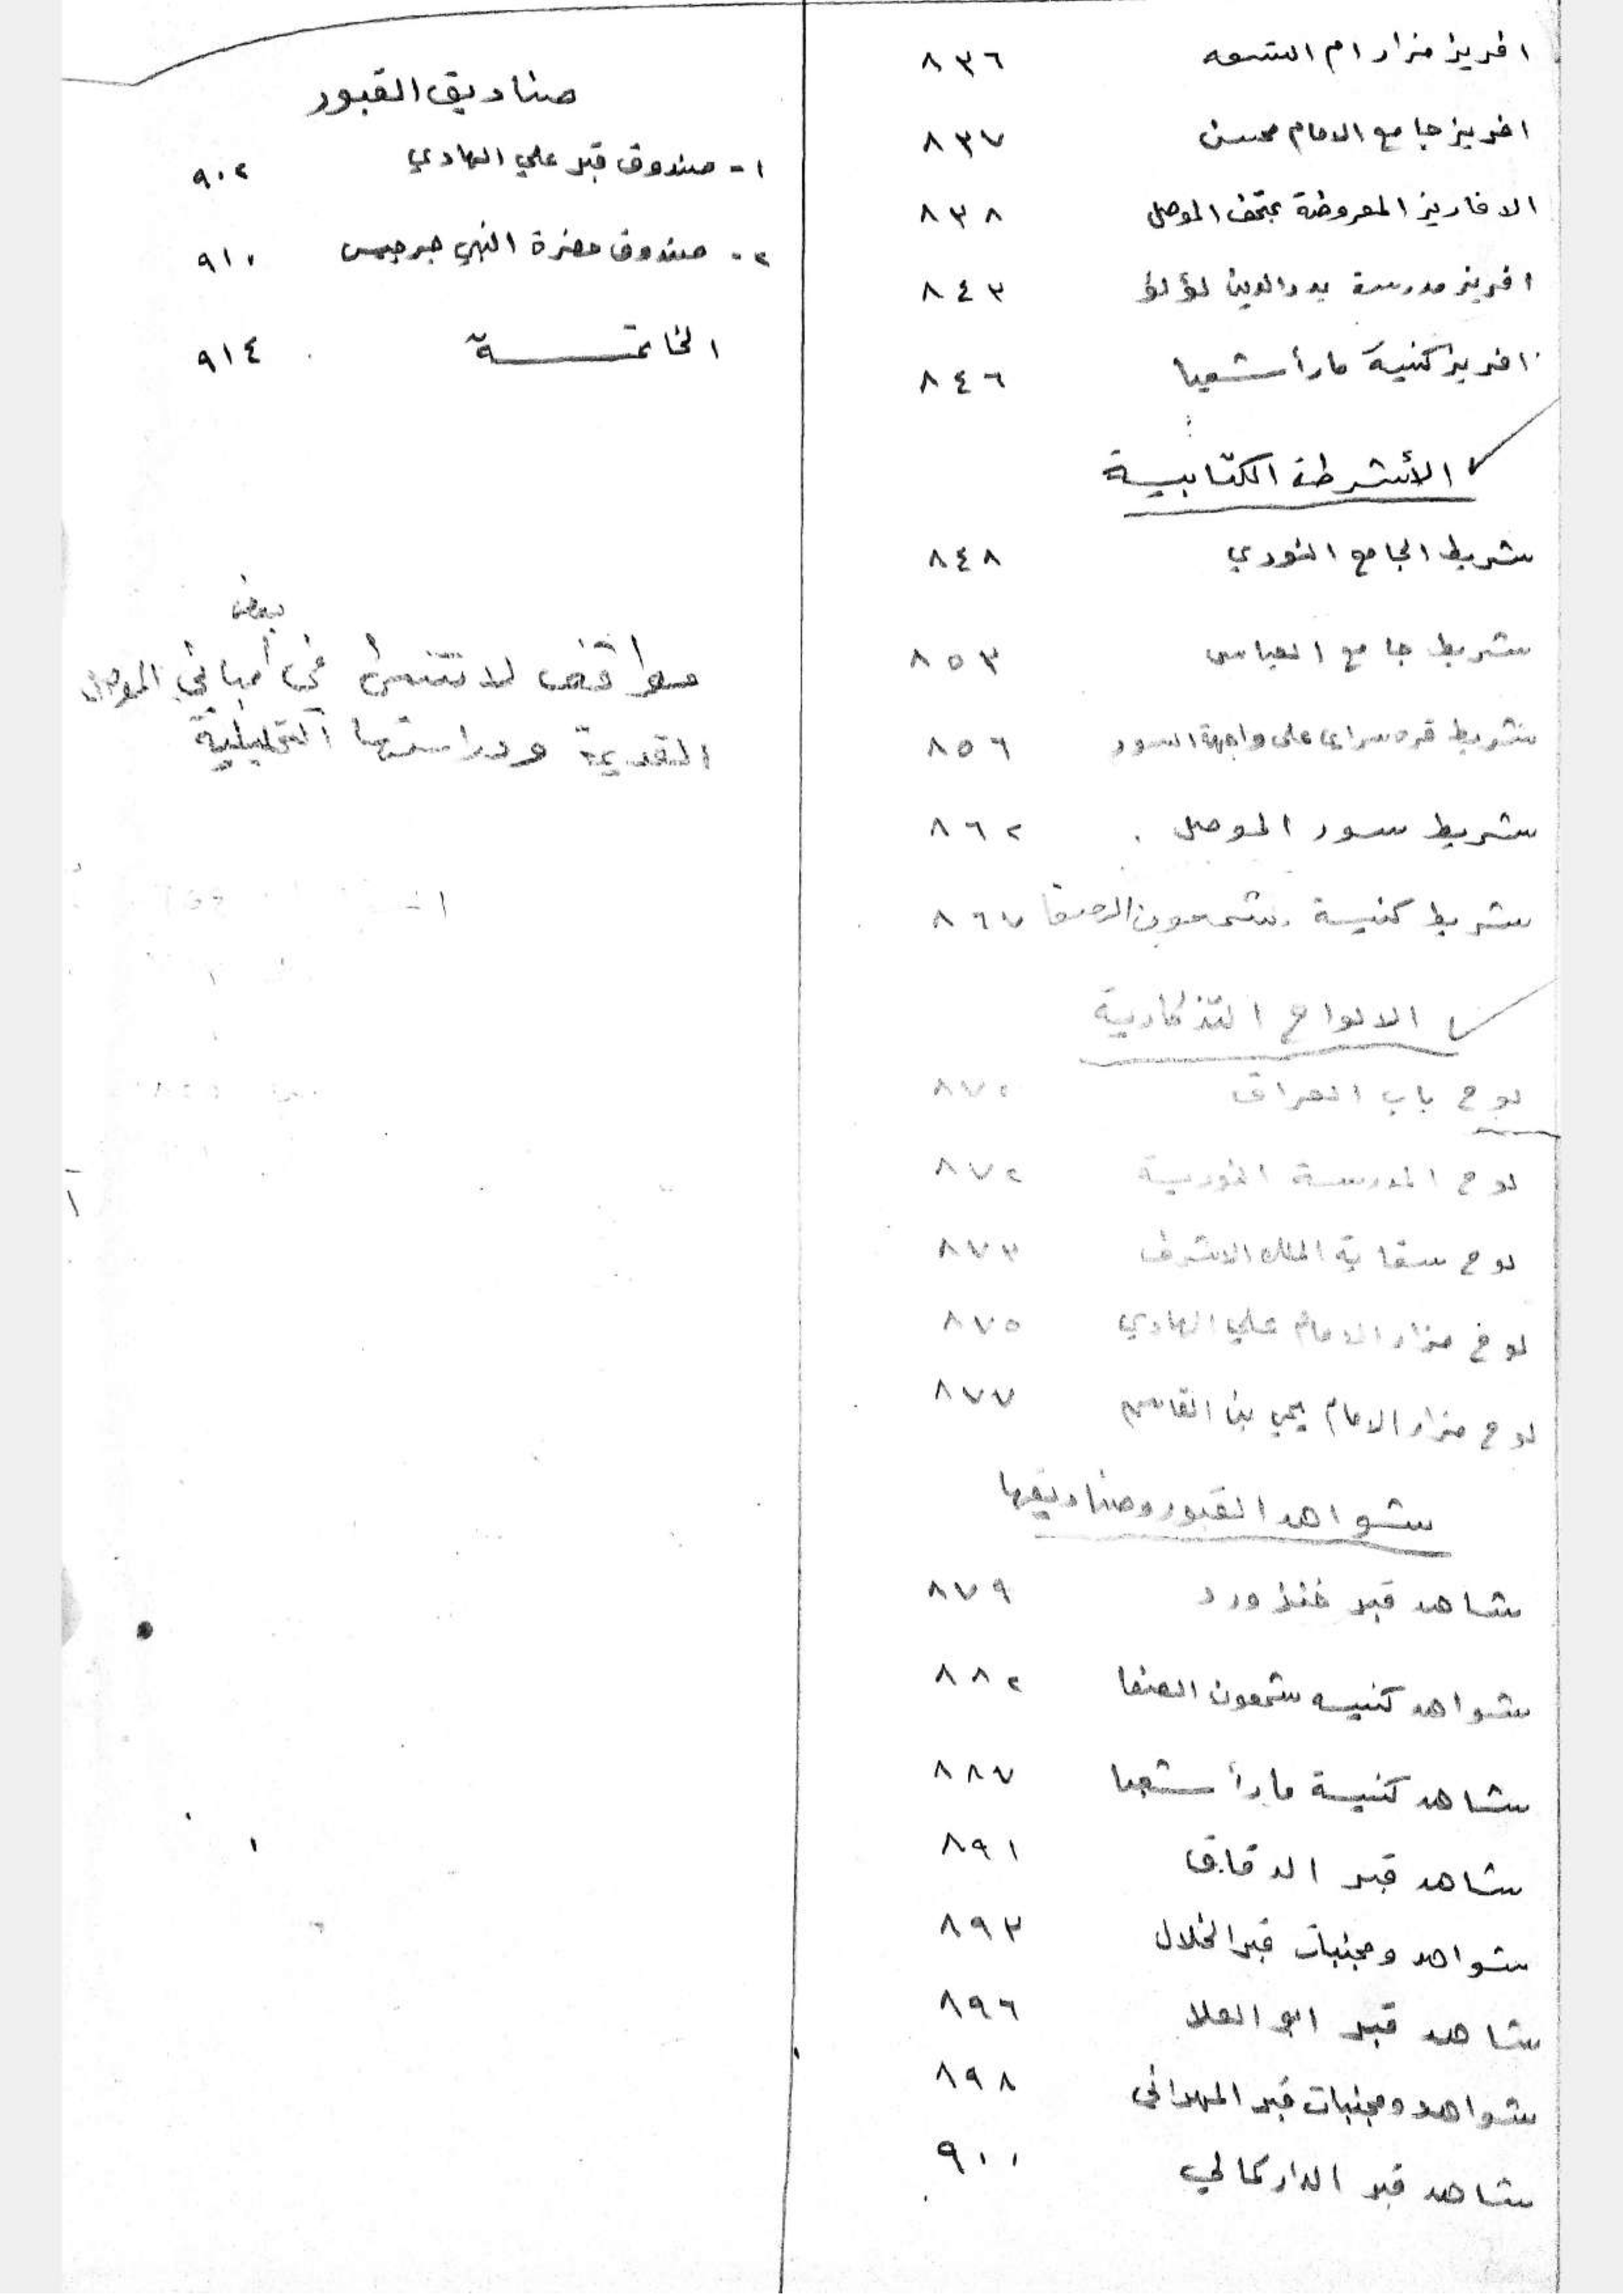 افريز مزار ام التسعه ٨٣٦
افريز جامع الامام محسن ٨٣٧
الافاريز المعروضة بمتحف الموصل ٨٣٨
افريز مدرسة بدر الدين لؤلؤ ٨٤٣
افريز كنيسة مارأشعيا ٨٤٦
الأشرطة الكتابية
شريط الجامع النوري ٨٤٨
شريط جامع العباس ٨٥٣
شريط قره سراي على واجهة السور ٨٥٦
شريط سور الموصل ٨٦٢
شريط كنيسة شمعون الصفا ٨٦٧
الالواح التذكارية
لوح باب العراق ٨٧٢
لوح المدرسة النورية ٨٧٢
لوح سقاية الملك الاشرف ٨٧٣
لوح مزار الامام علي الهادي ٨٧٥
لوح مزار الامام يحيى بن القاسم ٨٧٧
شواهد القبور وصناديقها
شاهد قبر ٨٧٩
شواهد كنيسه شمعون الصفا ٨٨٢
شاهد كنيسة مارأ شعيا ٨٨٧
شاهد قبر الدقاق ٨٩١
شواهد ومجنبات قبر الخلال ٨٩٣
شاهد قبر ابو العلا ٨٩٦
شواهد ومجنبات قبر المهراني ٨٩٨
شاهد قبر الداركمالي ٩٠٠
صناديق القبور
١- صندوق قبر علي الهادي ٩٠٢
٢- صندوق حضرة النبي جرجيس ٩١٠
الخاتمـــة ٩١٤
بعض
مواقف لا تنسى في مباني الموصل
القديمة ودراستها التحليلية